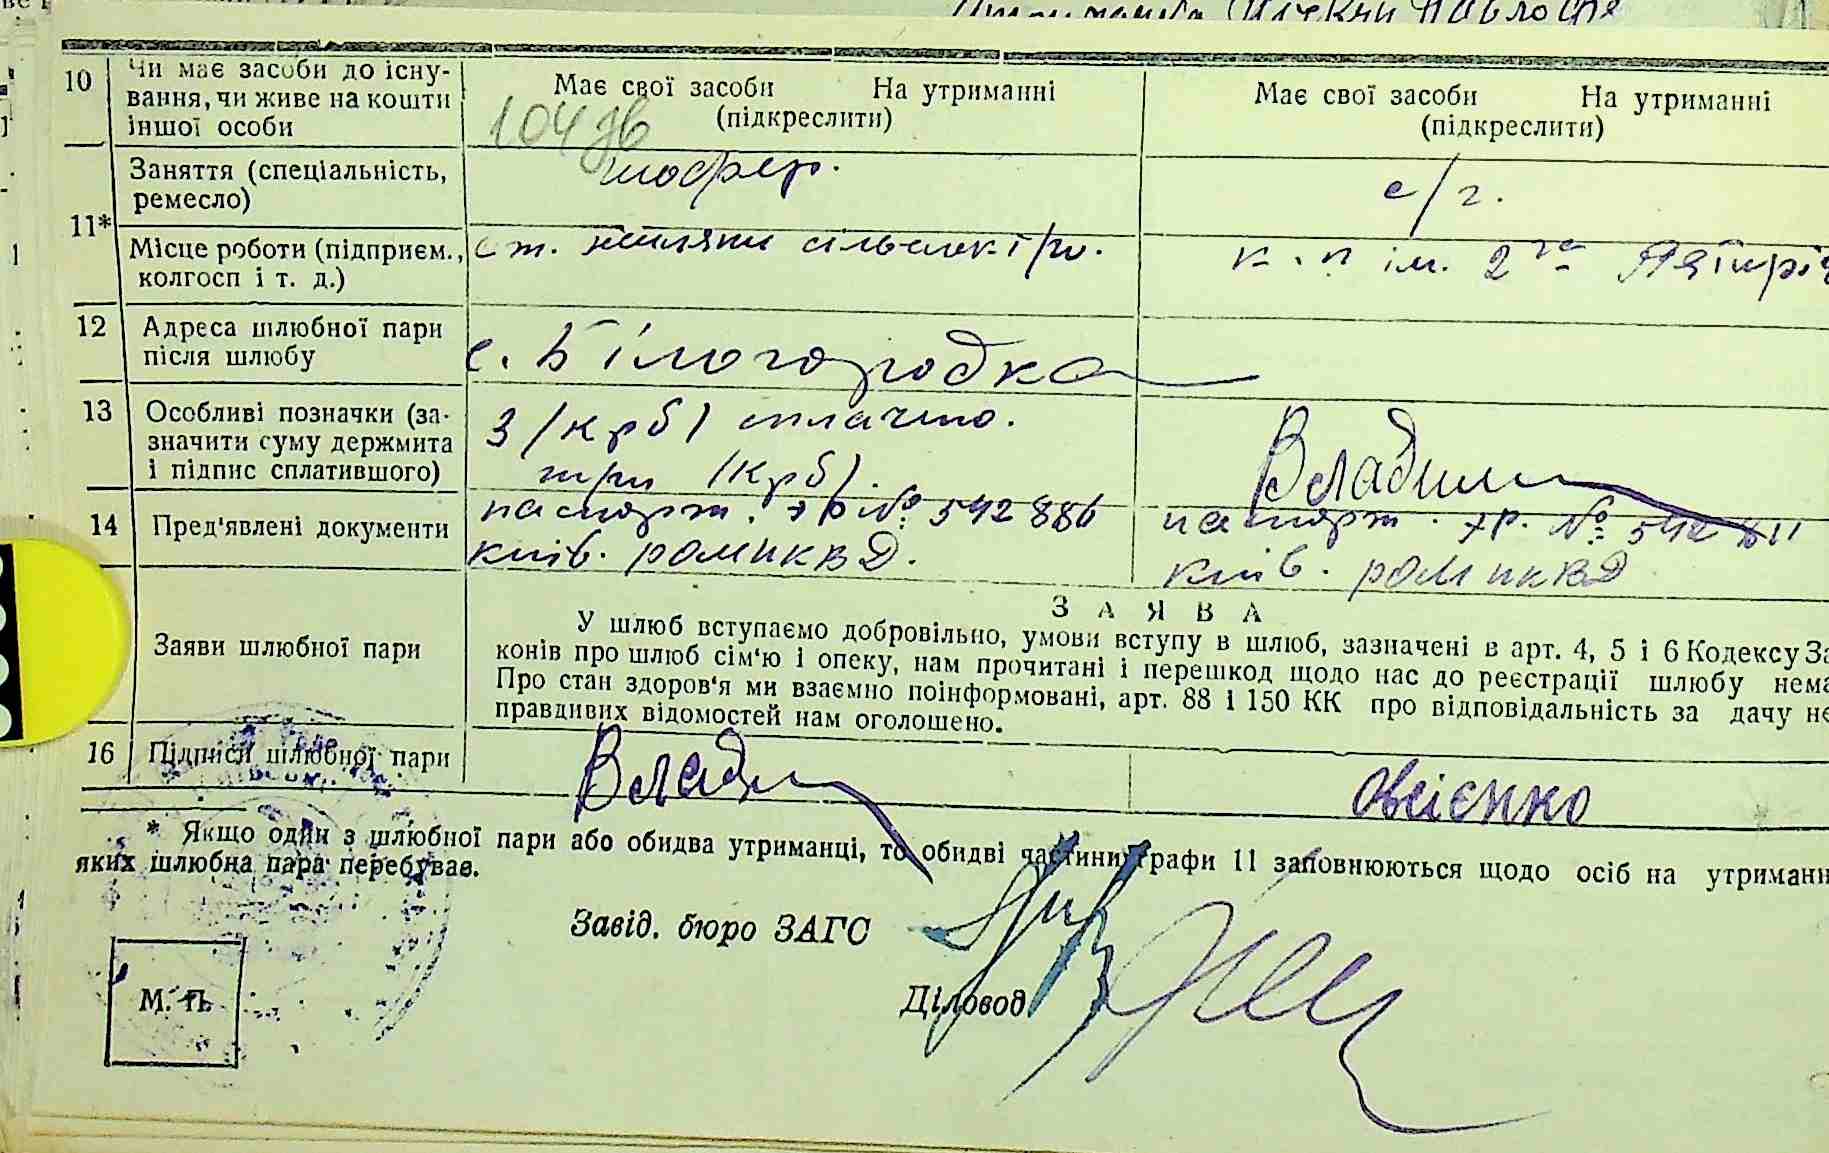 Павлов
10 Чи має засоби до існу-
вання, чи живе на кошти
іншої особи
Має свої засоби На утриманні
(підкреслити)
Має свої засоби На утриманні
(підкреслити)
11* Заняття (спеціальність,
ремесло)
шофер.
с/г.
Місце роботи (підприєм.,
колгосп і т. д.)
ст.
к-п ім. 2га
12 Адреса шлюбної пари
після шлюбу
с. Білогородка
13 Особливі позначки (за-
значити суму держмита
і підпис сплатившого)
3 /крб/ сплачено.
три /крб/.
Владим
14 Пред'явлені документи
паспорт. № 542886
київ. РОМ НКВД.
паспорт. № 542811
київ. РОМ НКВД
Заяви шлюбної пари
ЗАЯВА
У шлюб вступаємо добровільно, умови вступу в шлюб, зазначені в арт. 4, 5 і 6 Кодексу За
конів про шлюб сім'ю і опеку, нам прочитані і перешкод щодо нас до реєстрації шлюбу нема
Про стан здоров'я ми взаємно поінформовані, арт. 88 і 150 КК про відповідальність за дачу не
правдивих відомостей нам оголошено.
16 Підписи шлюбної пари
Влад
Овсієнко
* Якщо один з шлюбної пари або обидва утриманці, то обидві частини графи 11 заповнюються щодо осіб на утриманн
яких шлюбна пара перебуває.
Завід. бюро ЗАГС
Діловод
М. П.